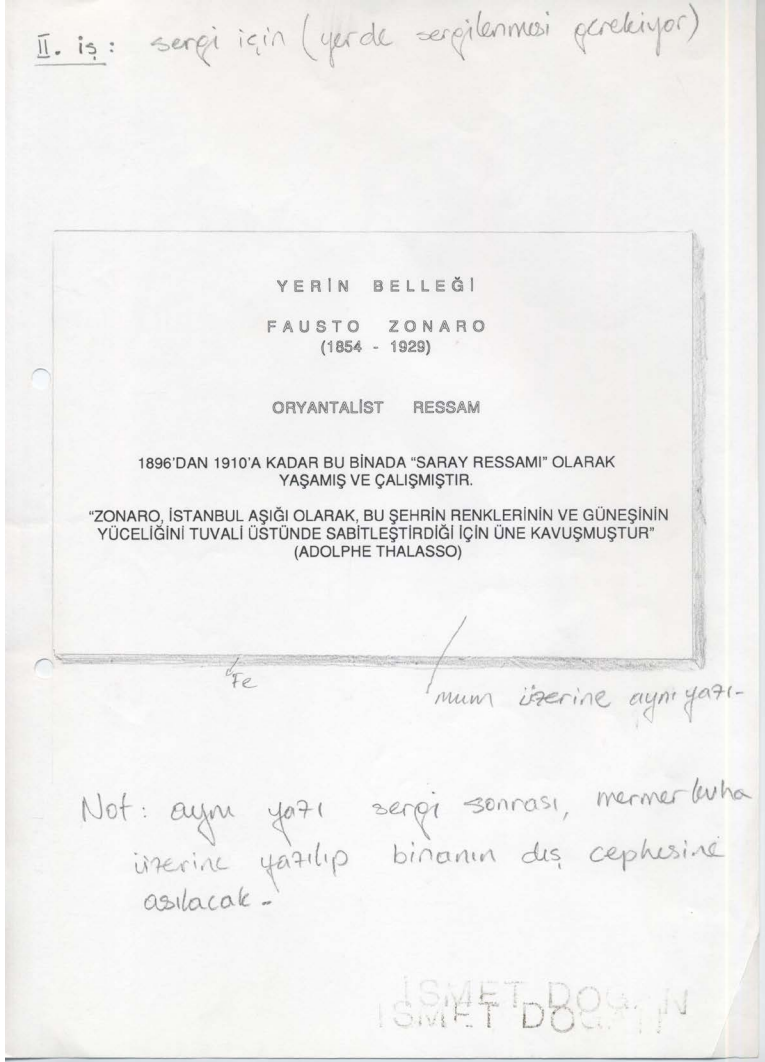 II. iş: sergi için (yerde sergilenmesi gerekiyor)
YERİN BELLEĞİ
FAUSTO ZONARO
(1854 - 1929)
ORYANTALİST RESSAM
1896'DAN 1910'A KADAR BU BİNADA “SARAY RESSAMI” OLARAK
YAŞAMIŞ VE ÇALIŞMIŞTIR.
“ZONARO, İSTANBUL AŞIĞI OLARAK, BU ŞEHRİN RENKLERİNİN VE GÜNEŞİNİN
YÜCELİĞİNİ TUVALİ ÜSTÜNDE SABİTLEŞTİRDİĞİ İÇİN ÜNE KAVUŞMUŞTUR”
(ADOLPHE THALASSO)
Fe
mum üzerine aynı yazı-
Not: aynı yazı sergi sonrası, mermer levha
üzerine yazılıp binanın dış cephesine
asılacak-
İSMET DOĞAN
İSMET DOĞAN